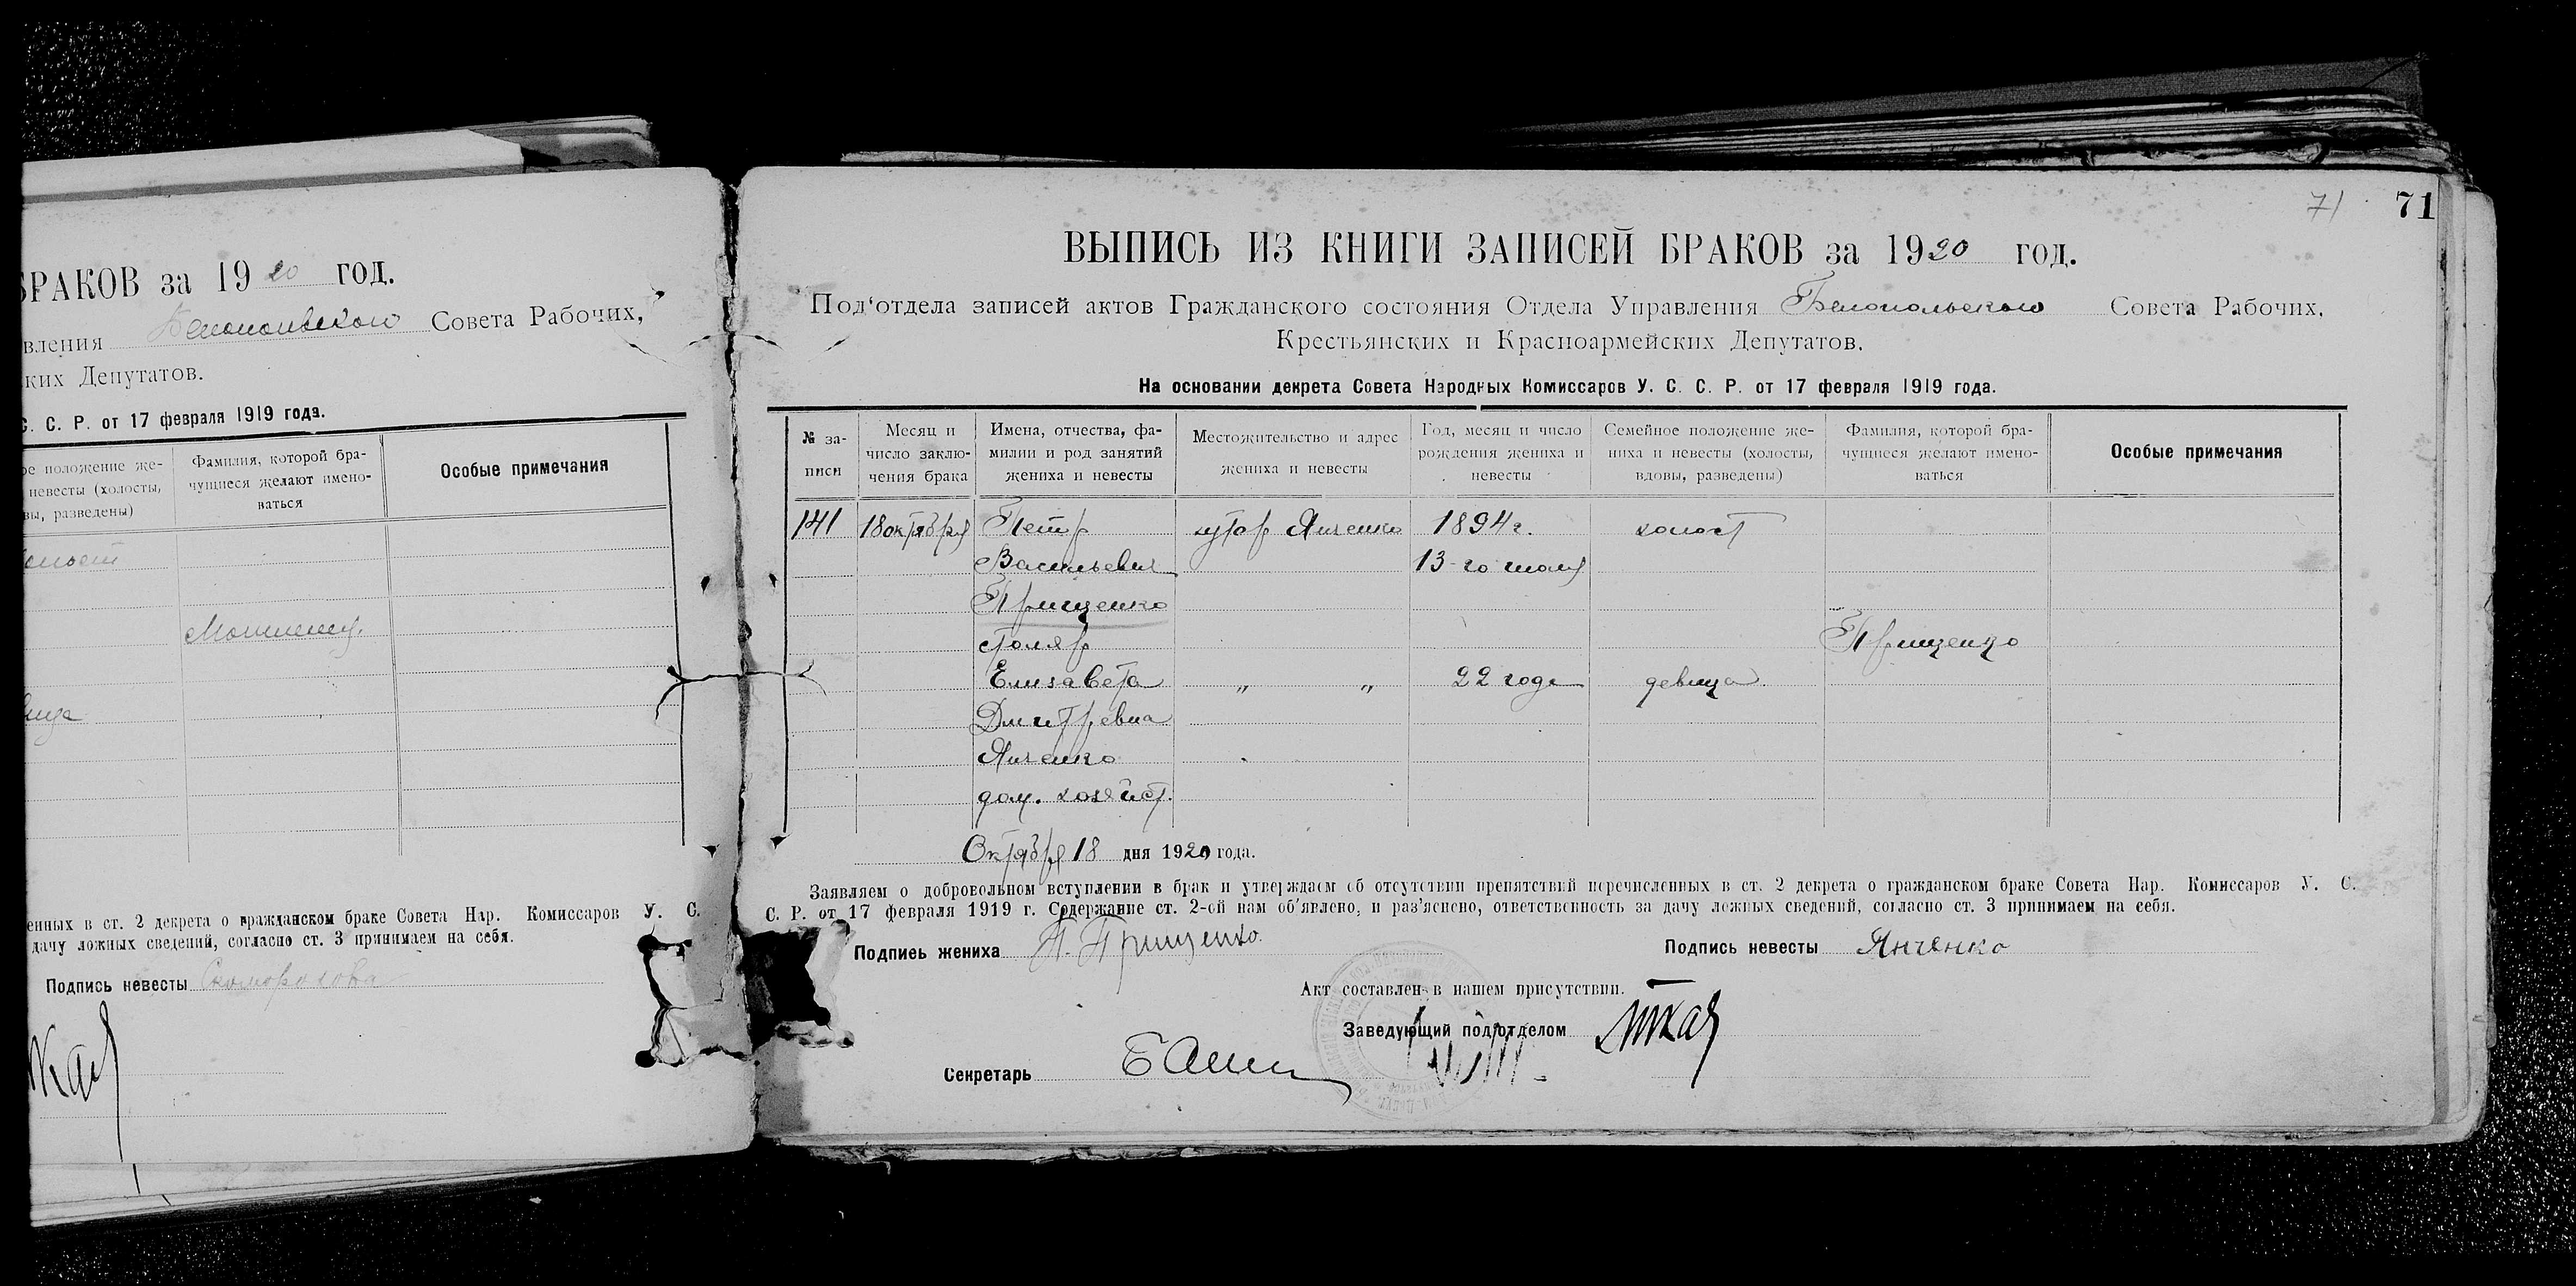 БРАКОВ за 1920 год.
вления Белопольского Совета Рабочих,
ких Депутатов.
С. С. Р. от 17 февраля 1919 года.
ое положение же-
невесты (холосты,
вы, разведены)
Фамилия, которой бра-
чущиеся желают имено-
ваться
Особые примечания
енных в ст. 2 декрета о гражданском браке Совета Нар. Комиссаров У. С.
дачу ложных сведений, согласно ст. 3 принимаем на себя.
Подпись невесты Скоморохова
71 71
ВЫПИСЬ ИЗ КНИГИ ЗАПИСЕЙ БРАКОВ за 1920 год.
Под‘отдела записей актов Гражданского состояния Отдела Управления Белопольского Совета Рабочих,
Крестьянских и Красноармейских Депутатов.
На основании декрета Совета Народных Комиссаров У. С. С. Р. от 17 февраля 1919 года.
№ за-
писи
Месяц и
число заклю-
чения брака
Имена, отчества, фа-
милии и род занятий
жениха и невесты
Местожительство и адрес
жениха и невесты
Год, месяц и число
рождения жениха и
невесты
Семейное положение же-
ниха и невесты (холосты,
вдовы, разведены)
Фамилия, которой бра-
чущиеся желают имено-
ваться
Особые примечания
141 18 октября Петр хутор Янченко 1894 г. холост
Васильевич 13-го июля
Прищенко
столяр Прищенко
Елизавета „ „ 22 года девица
Дмитревна
Янченко
дом. хозяйст.
Октября 18 дня 1920 года.
Заявляем о добровольном вступлении в брак и утверждаем об отсутствии препятствий перечисленных в ст. 2 декрета о гражданском браке Совета Нар. Комиссаров У. С.
С. Р. от 17 февраля 1919 г. Содержание ст. 2-ой нам об'явлено, и раз'яснено, ответственность за дачу ложных сведений, согласно ст. 3 принимаем на себя.
Подпись жениха П. Прищенко. Подпись невесты Янченко
Акт составлен в нашем присутствии.
Заведующий под'отделом
Секретарь